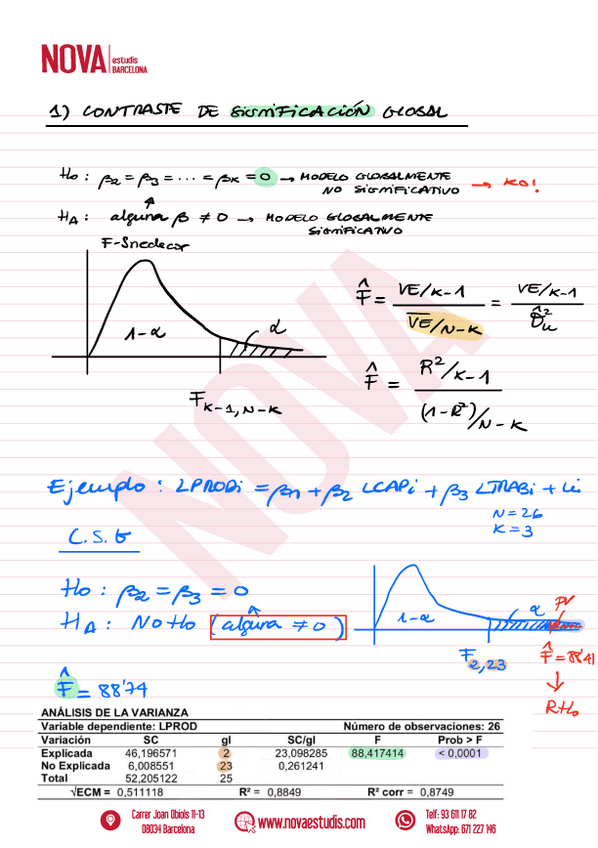 NOVA estudis BARCELONA
1) CONTRASTE DE SIGNIFICACIÓN GLOBAL
H₀ : β₂ = β₃ = ... = βₖ = 0 → MODELO GLOBALMENTE NO SIGNIFICATIVO → KO!
H_A : alguna β ≠ 0 → MODELO GLOBALMENTE SIGNIFICATIVO
F-Snedecor
1-α
α
F K-1, N-K
F̂ = VE/K-1 / V̅E̅/N-K = VE/K-1 / σ̂²ᵤ
F̂ = R²/K-1 / (1-R²)/N-K
NOVA
Ejemplo : LPRODi = β1 + β2 LCAPi + β3 LTRABi + Ui
N = 26
K = 3
C.S.G
H₀ : β₂ = β₃ = 0
H_A : NO H₀ (alguna ≠ 0)
1-α
α
PV
F 2,23
F̂ = 88'41
↓
RH₀
F̂ = 88'74
ANÁLISIS DE LA VARIANZA
Variable dependiente: LPROD Número de observaciones: 26
Variación SC gl SC/gl F Prob > F
Explicada 46,196571 2 23,098285 88,417414 < 0,0001
No Explicada 6,008551 23 0,261241
Total 52,205122 25
√ECM = 0,511118 R² = 0,8849 R² corr = 0,8749
Carrer Joan Obiols 11-13
08034 Barcelona
www.novaestudis.com
Telf: 93 611 17 82
WhatsApp: 671 227 146